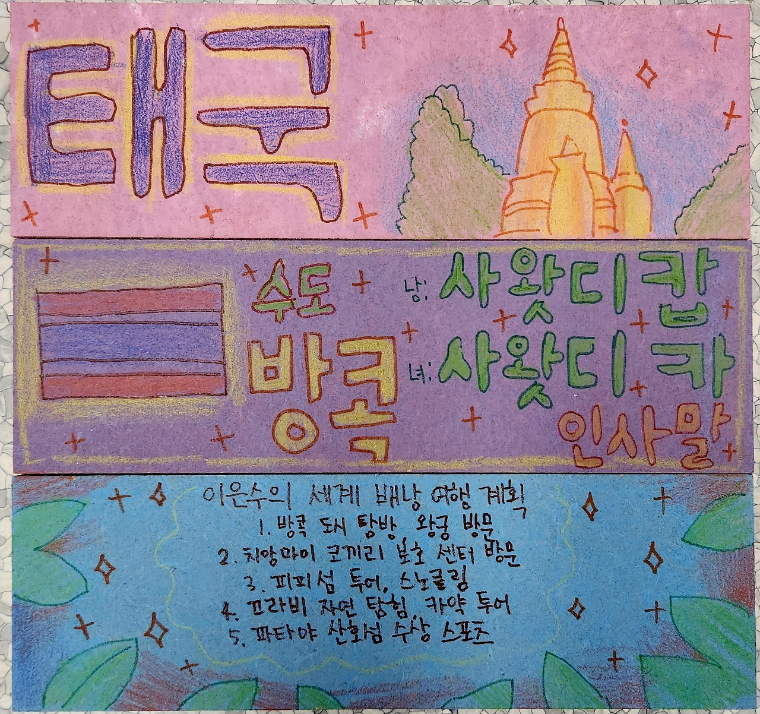 태국
수도
방콕
남: 사왓디 캅
녀: 사왓디 카
인사말
이은수의 세계 배낭 여행 계획
1. 방콕 도시 탐방, 왕궁 방문
2. 치앙마이 코끼리 보호 센터 방문
3. 피피섬 투어, 스노클링
4. 끄라비 자연 탐험, 카약 투어
5. 파타야 산호섬 수상 스포츠